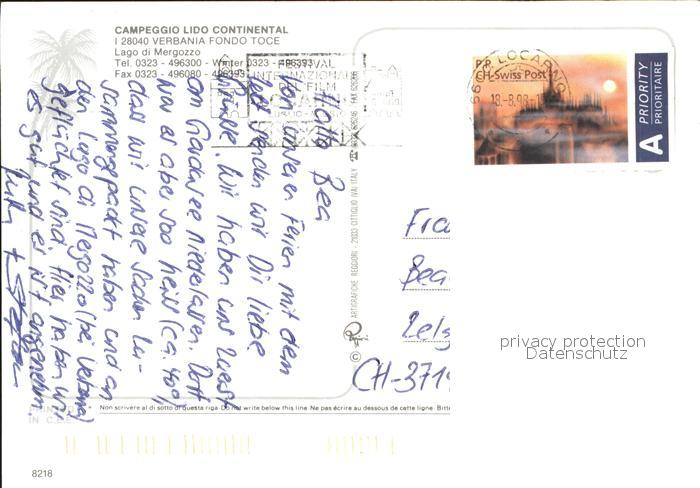 CAMPEGGIO LIDO CONTINENTAL
I 28040 VERBANIA FONDO TOCE
Lago di Mergozzo
Tel. 0323 - 496300 - Winter 0323 - 496393
Fax 0323 - 496080 - 496393
FESTIVAL
INTERNAZIONALE
DEL FILM
LOCARNO
18.-8.98-1
P.P.
CH-Swiss Post
A PRIORITY
PRIORITAIRE
Hallo Bea
Von unseren Ferien mit dem
senden wir Dir liebe
Grüsse. Wir haben uns zuerst
am Gardasee niedergelassen. Dort
war es aber soo heiss (ca. 40°),
dass wir unsere Sachen
zusammengepackt haben und an
den Lago di Mergozzo (bei Verbania)
geflüchtet sind. Hier haben wir
es gut und es ist angenehm.
Fra
Bea
Zelg
CH-371
© ARTIGRAFICHE REGGIORI - 21033 CITTIGLIO (VA) ITALY
Non scrivere al di sotto di questa riga. Do not write below this line. Ne pas écrire au dessous de cette ligne. Bitte
PRINTED
IN C.E.E.
8218
privacy protection
Datenschutz